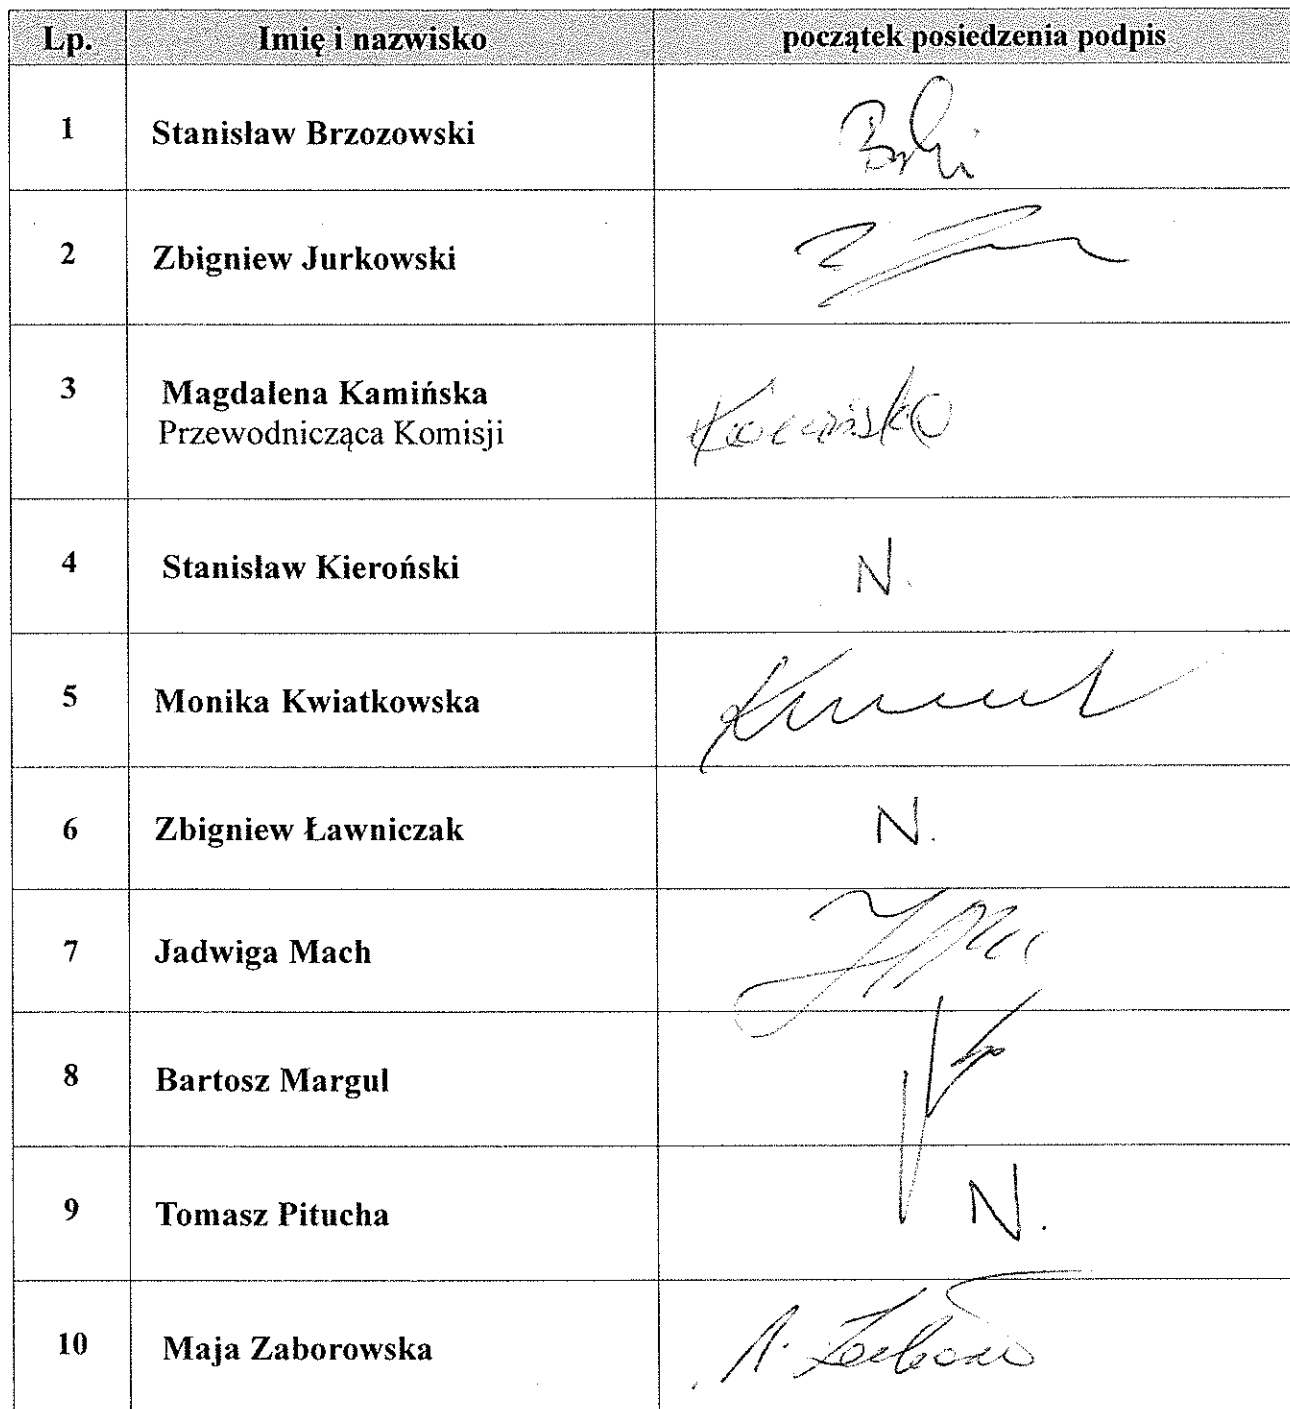 Lp. Imię i nazwisko początek posiedzenia podpis
1 Stanisław Brzozowski
2 Zbigniew Jurkowski
3 Magdalena Kamińska
Przewodnicząca Komisji
4 Stanisław Kieroński N.
5 Monika Kwiatkowska
6 Zbigniew Ławniczak N.
7 Jadwiga Mach
8 Bartosz Margul
9 Tomasz Pitucha N.
10 Maja Zaborowska